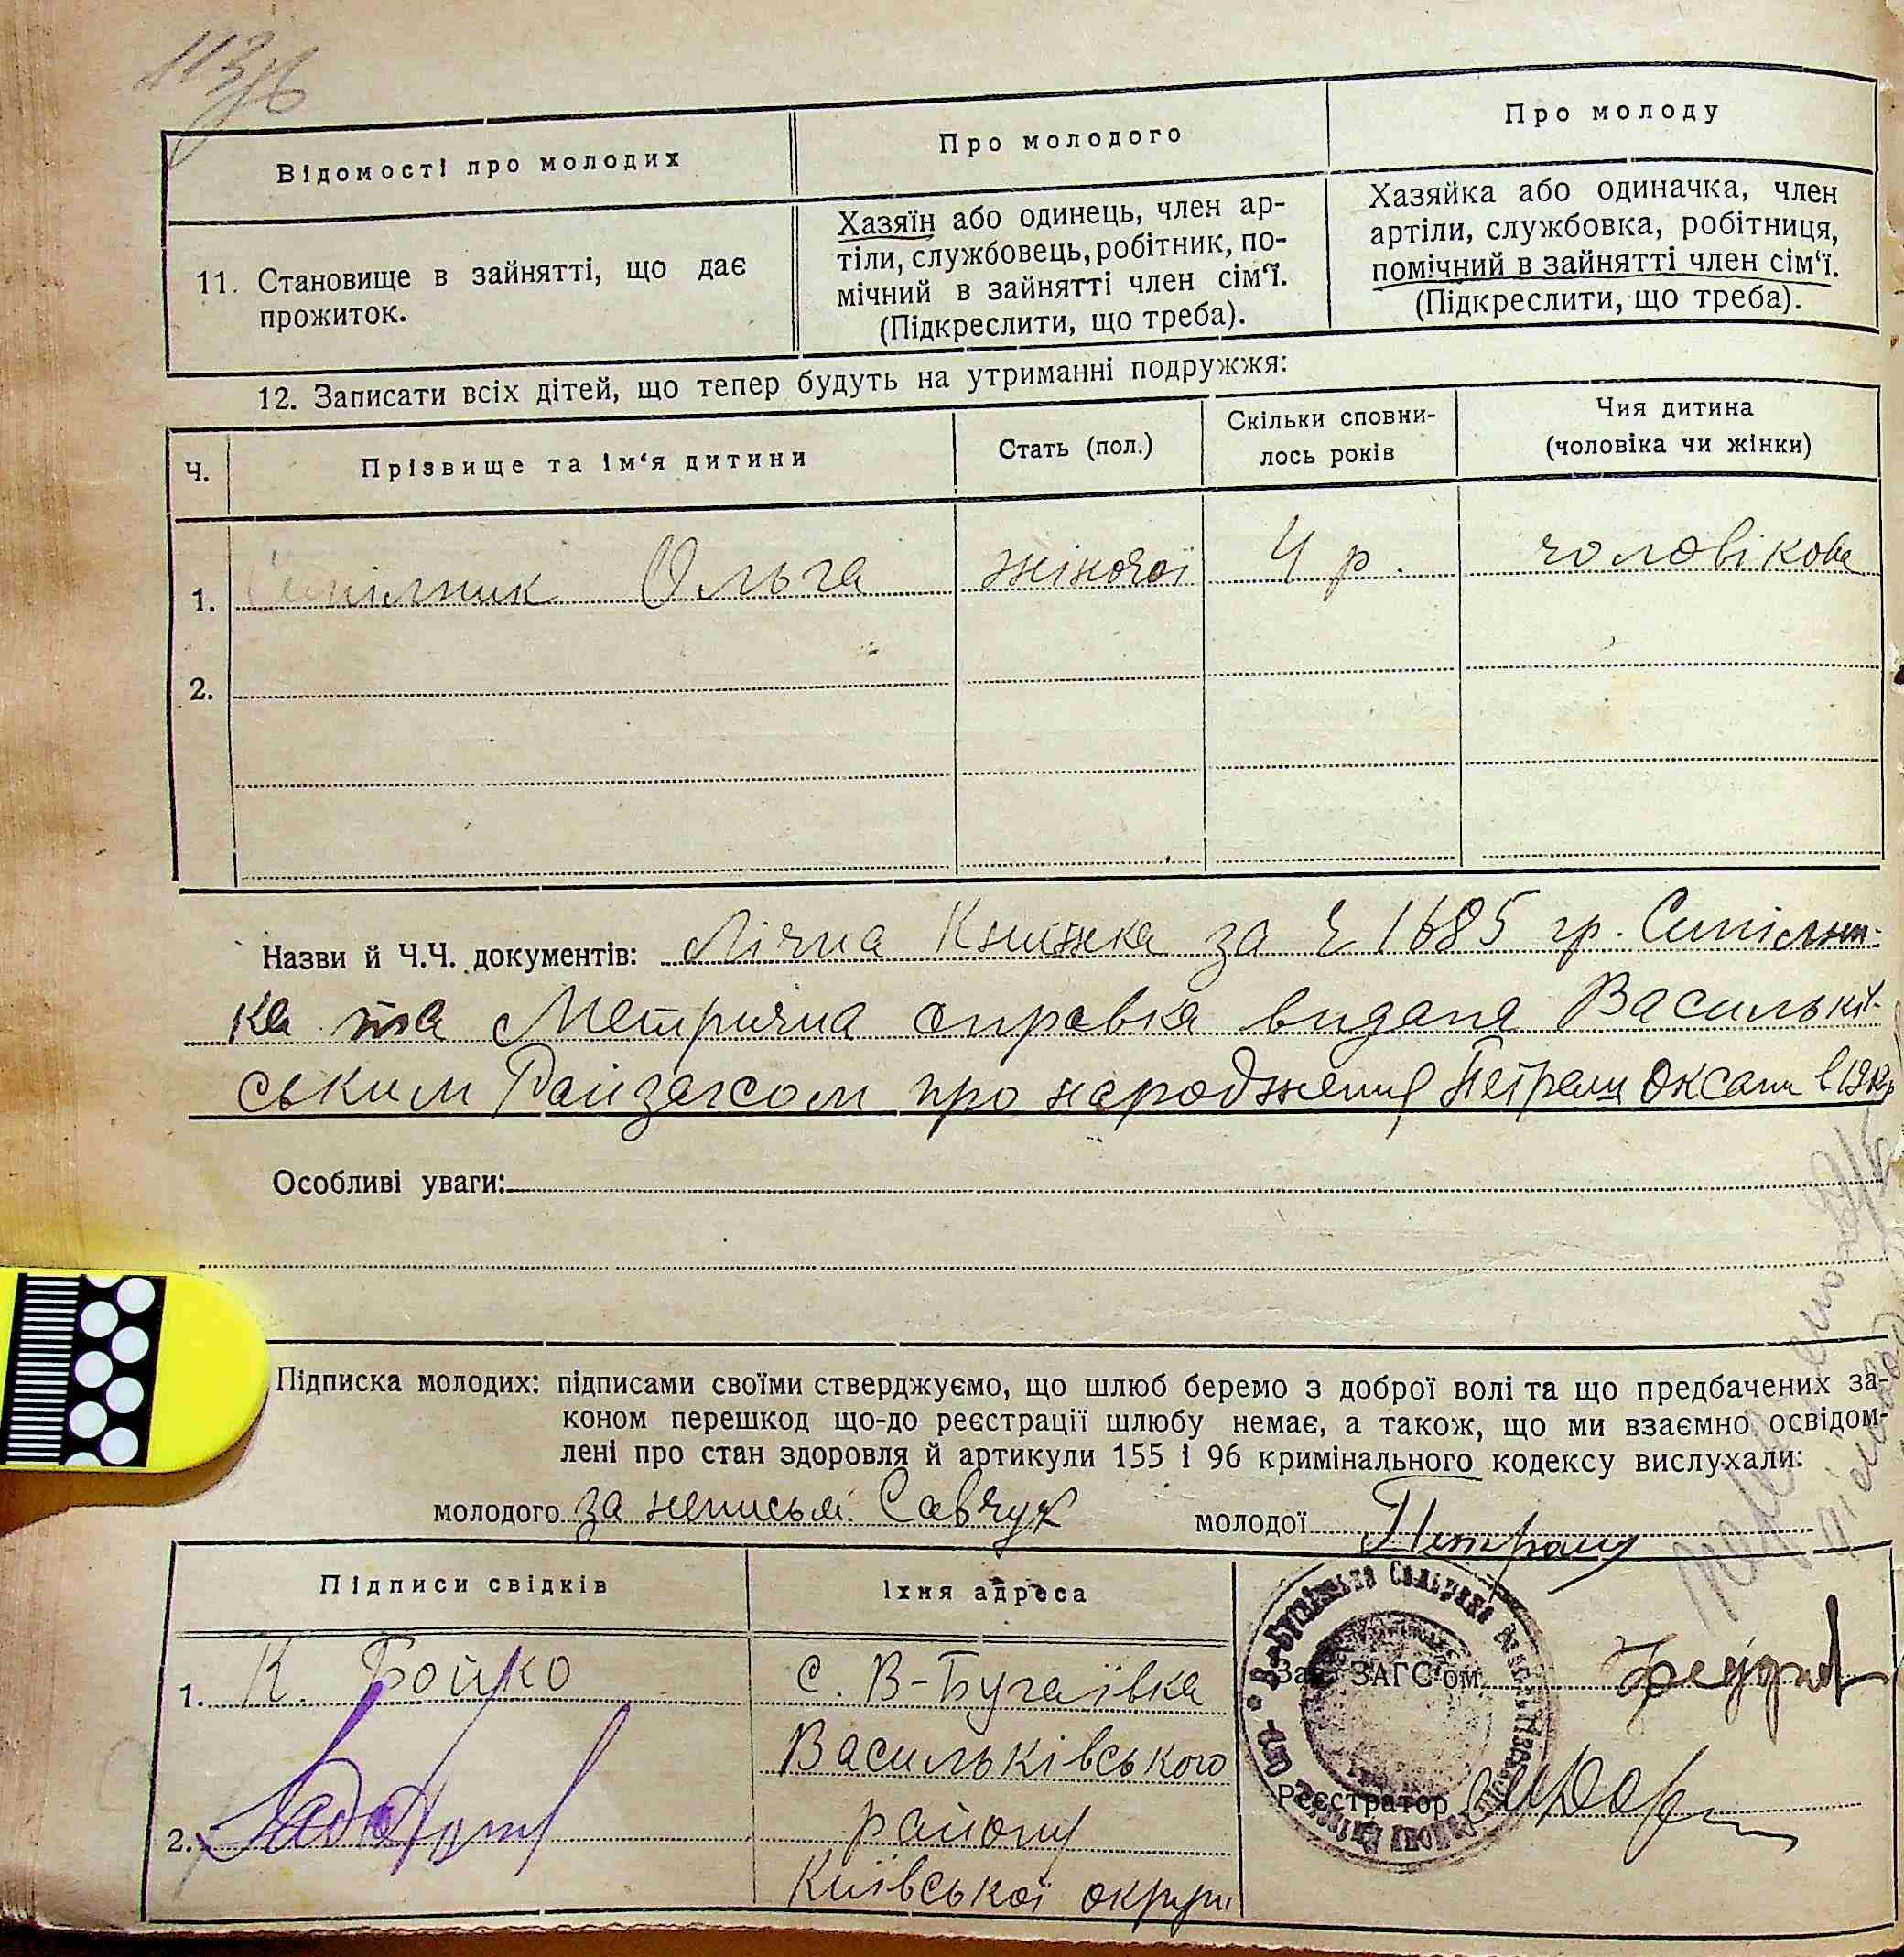 113
Відомості про молодих
Про молодого
Про молоду
11. Становище в зайнятті, що дає
прожиток.
Хазяїн або одинець, член ар-
тіли, службовець, робітник, по-
мічний в зайнятті член сім‘ї.
(Підкреслити, що треба).
Хазяйка або одиначка, член
артіли, службовка, робітниця,
помічний в зайнятті член сім‘ї.
(Підкреслити, що треба).
12. Записати всіх дітей, що тепер будуть на утриманні подружжя:
Ч.
Прізвище та ім‘я дитини
Стать (пол.)
Скільки сповни-
лось років
Чия дитина
(чоловіка чи жінки)
1. Сипілник Ольга
жіночої
4 р.
чоловікова
2.
Назви й Ч.Ч. документів: Лічна Книжка за Ч 1685 гр. Сипільни-
ка та Метрична справка видана Васильків-
ським Райзагсом про народження Петраш Оксани в
Особливі уваги:
Підписка молодих: підписами своїми стверджуємо, що шлюб беремо з доброї волі та що предбачених за-
коном перешкод що-до реєстрації шлюбу немає, а також, що ми взаємно освідом-
лені про стан здоровля й артикули 155 і 96 кримінального кодексу вислухали:
молодого за неписьм. Савчук
молодої Петраш
Підписи свідків
Їхня адреса
1. К. Бойко
с. В-Бугаївка
Васильківського
району
Київської округи
2.
Зав. ЗАГС‘ом
Реєстратор